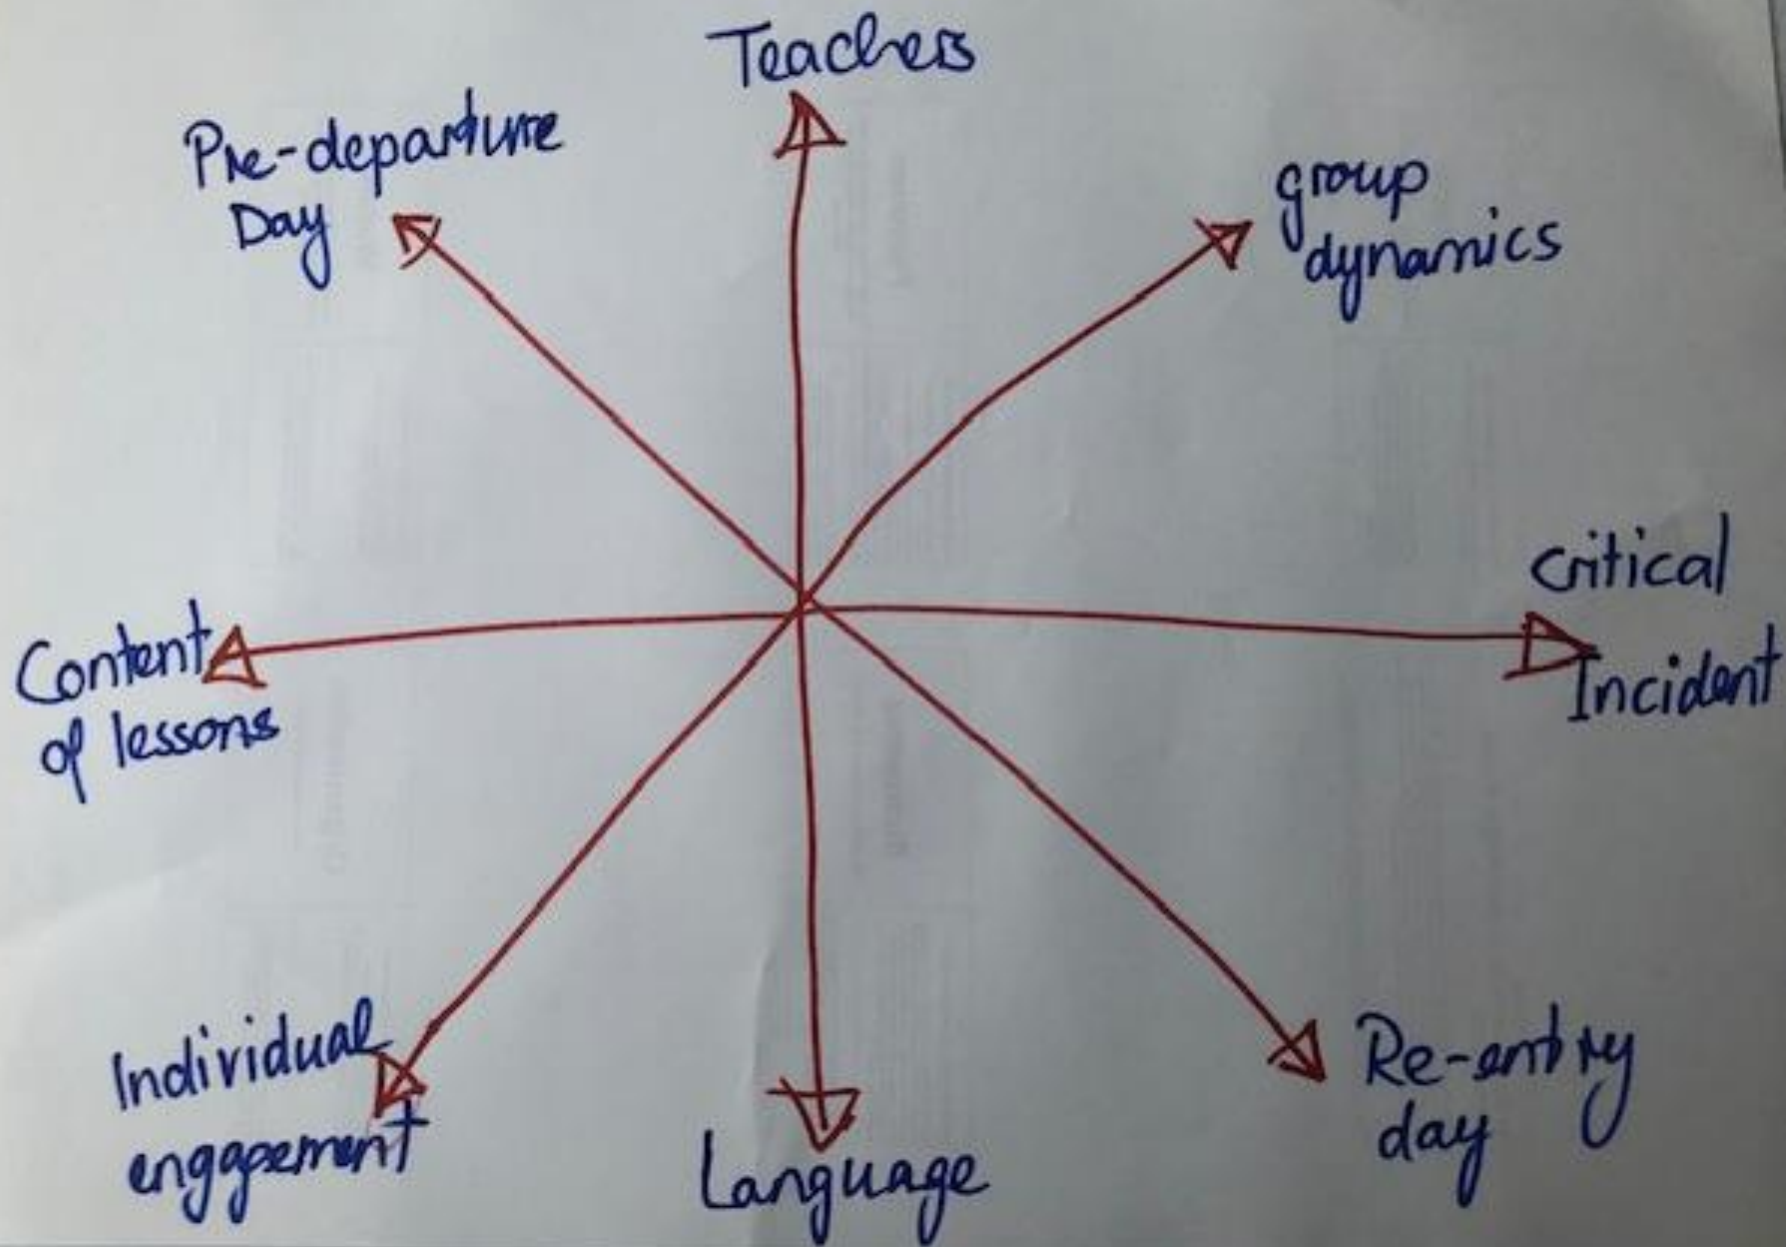 Teachers
Pre-departure
Day
group
dynamics
critical
Incident
Content
of lessons
Individual
engagement
Language
Re-entry
day